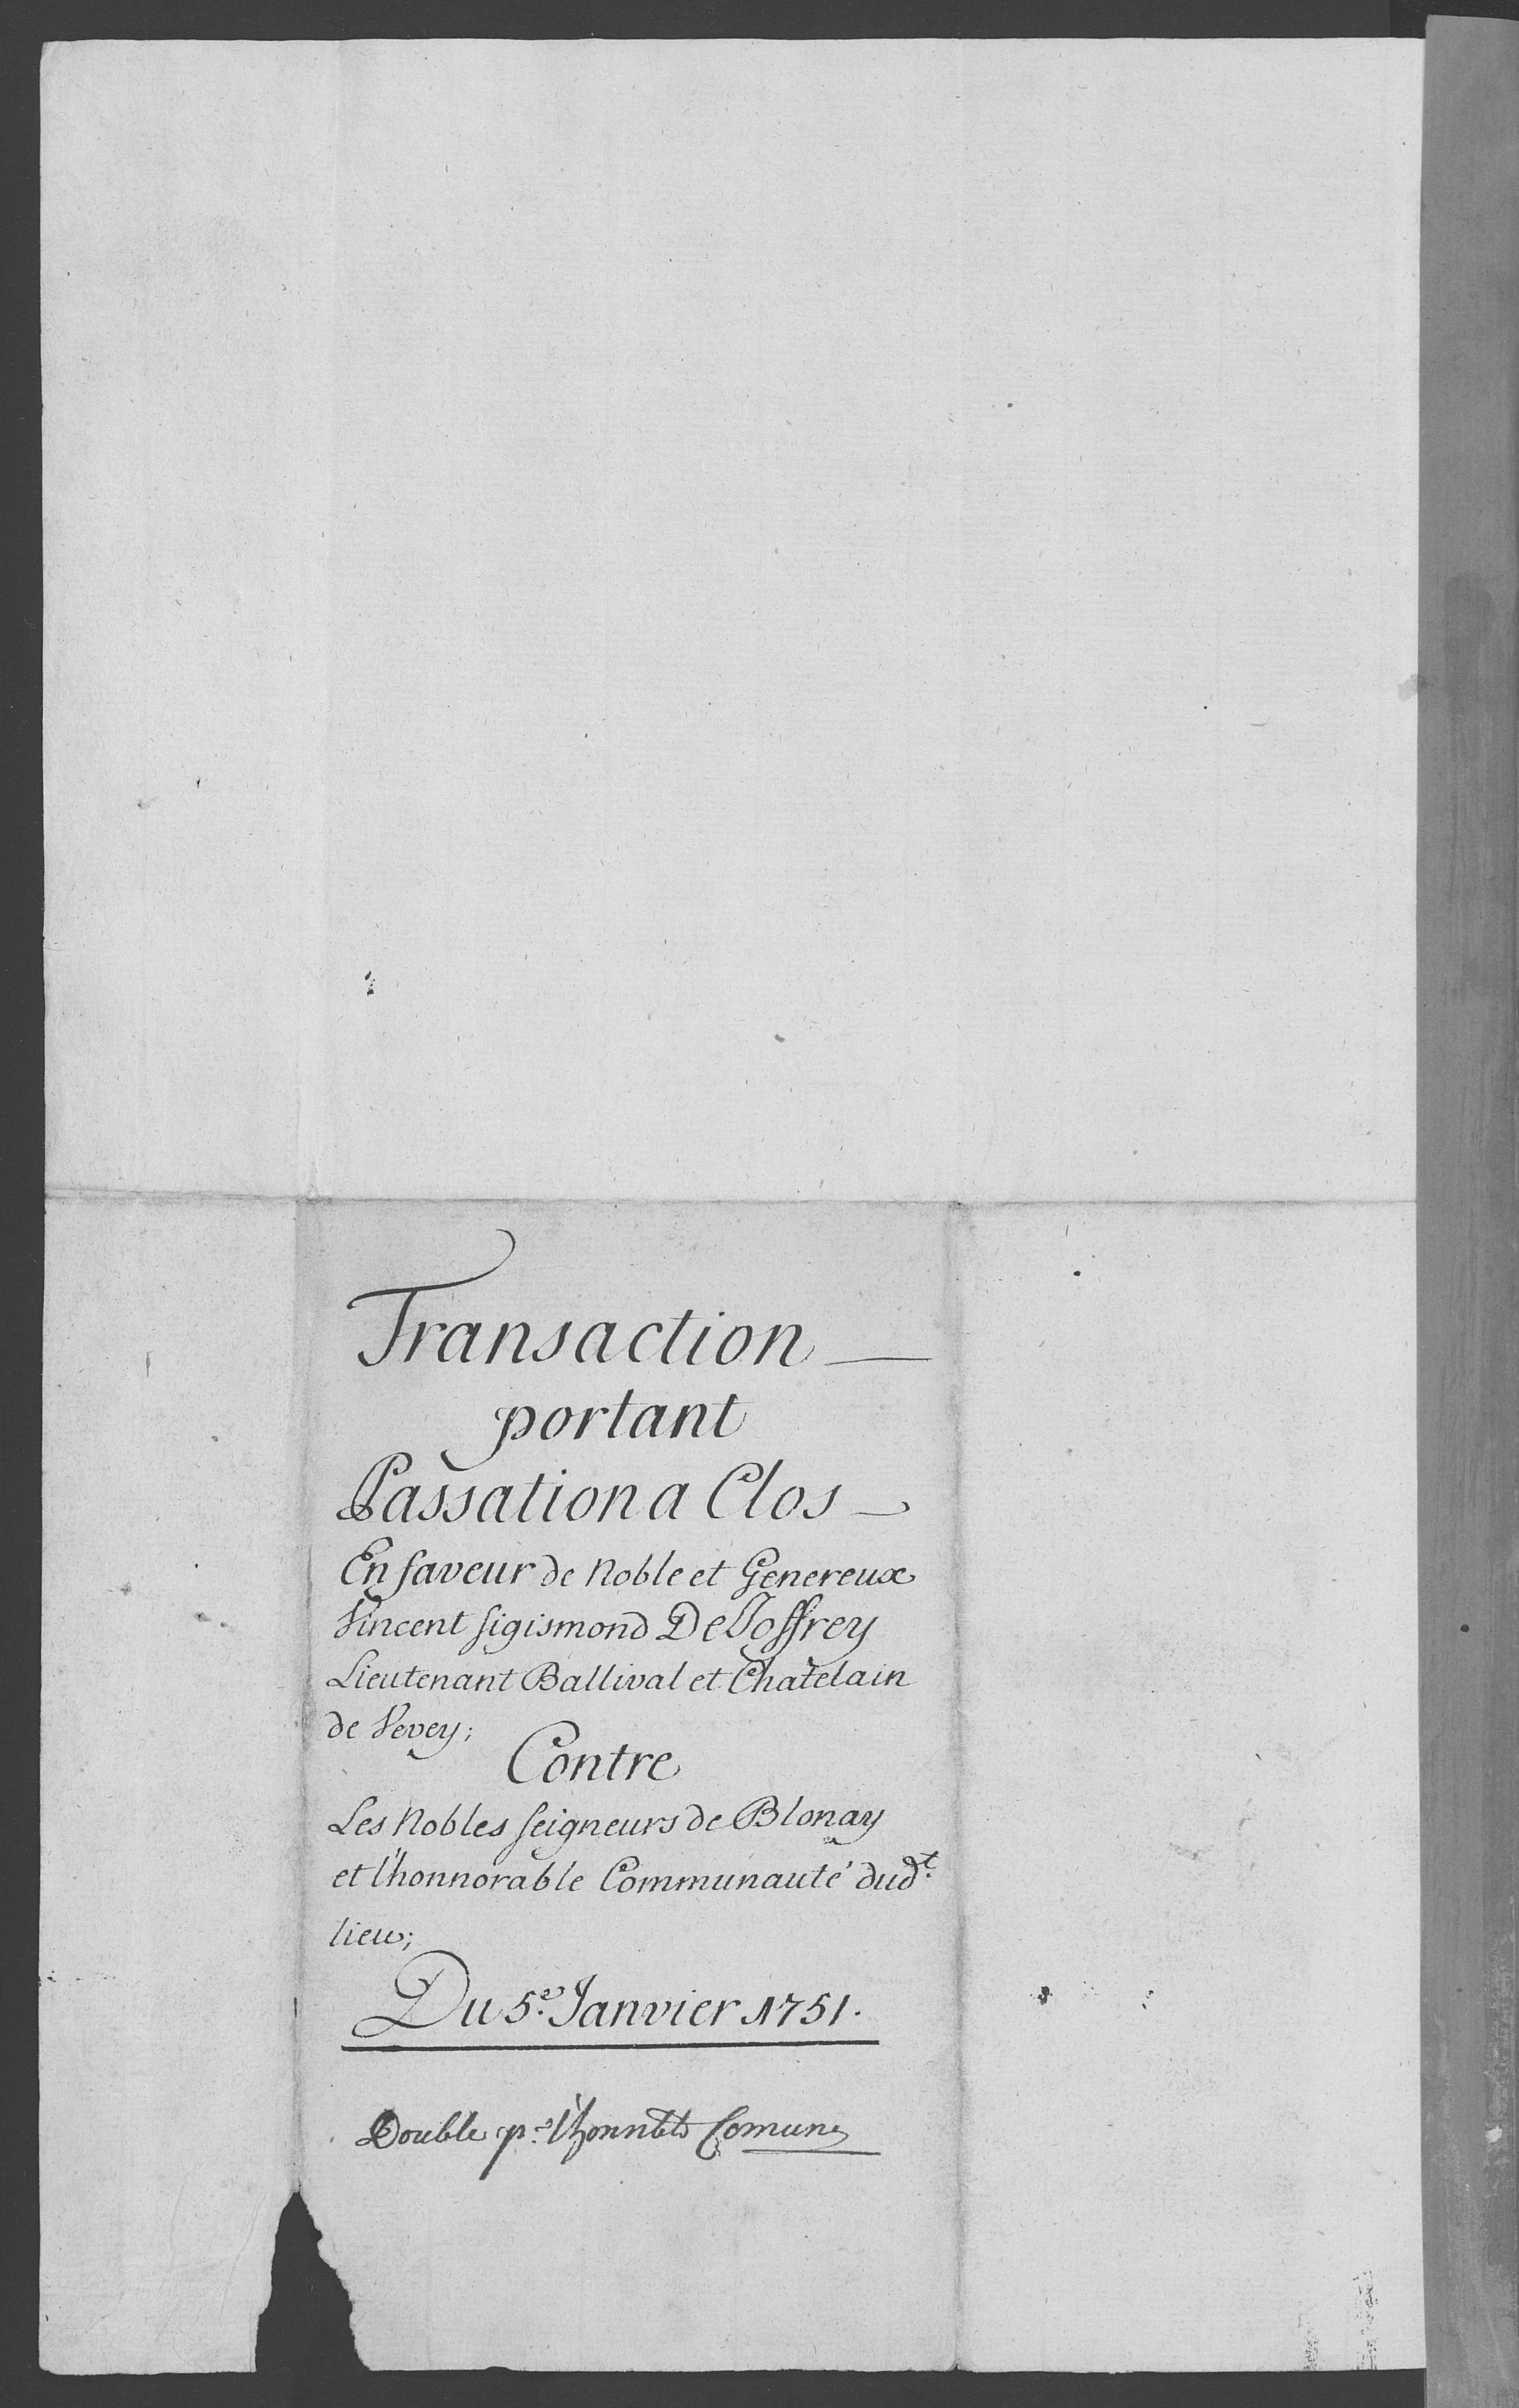 Transaction
portant
Passation a Clos
En faveur de Noble et Genereux
Vincent Sigismond De Joffrey
Lieutenant Ballival et Chatelain
de Vevey;
Contre
Les Nobles Seigneurs de Blonay
et l'honnorable Communauté dud.t
lieu;
Du 5.e Janvier 1751.
Double p.r Comune